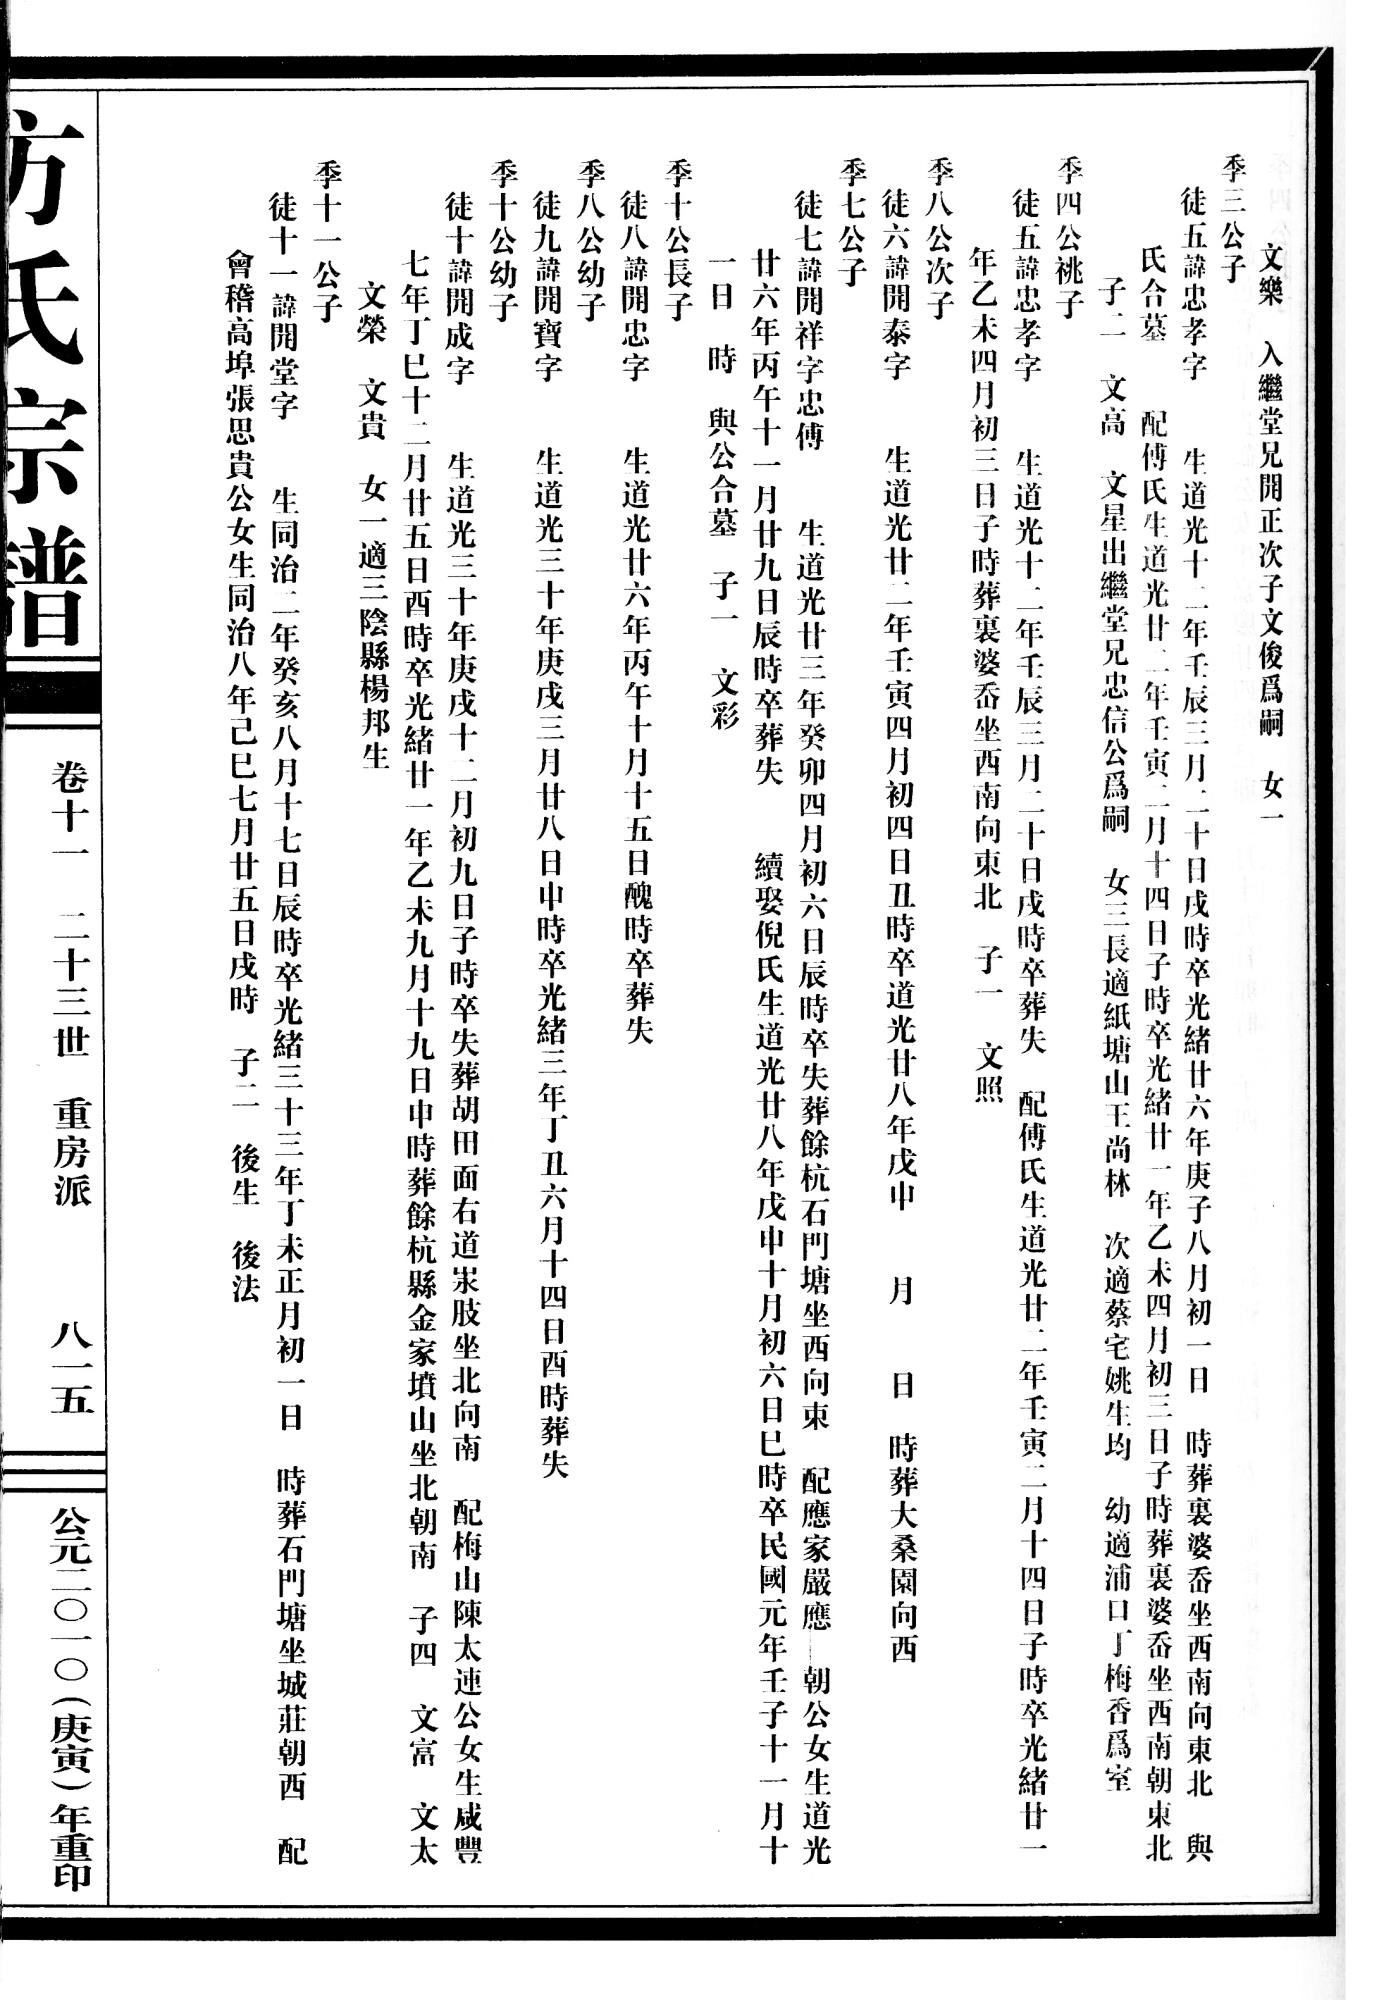 文樂　入繼堂兄開正次子文俊爲嗣　女一
季三公子
徒五諱忠孝字　　生道光十二年壬辰三月二十日戌時卒光緒廿六年庚子八月初一日　時葬裏婆岙坐西南向東北　與
氏合墓　　配傅氏生道光廿二年壬寅二月十四日子時卒光緒廿一年乙未四月初三日子時葬裏婆岙坐西南朝東北
子二　文高　文星出繼堂兄忠信公爲嗣　女三長適紙塘山王尚林　次適蔡宅姚生均　幼適浦口丁梅香爲室
季四公祧子
徒五諱忠孝字　　生道光十二年壬辰三月二十日戌時卒葬失　配傅氏生道光廿二年壬寅二月十四日子時卒光緒廿一
年乙未四月初三日子時葬裏婆岙坐西南向東北　子一　文照
季八公次子
徒六諱開泰字　　生道光廿二年壬寅四月初四日丑時卒道光廿八年戊申　　月　　日　時葬大桑園向西
季七公子
徒七諱開祥字忠傅　　生道光廿三年癸卯四月初六日辰時卒失葬餘杭石門塘坐西向東　配應家嚴應朝公女生道光
廿六年丙午十一月廿九日辰時卒葬失　　續娶倪氏生道光廿八年戊申十月初六日巳時卒民國元年壬子十一月十
一日　時　與公合墓　子一　文彩
季十公長子
徒八諱開忠字　　生道光廿六年丙午十月十五日醜時卒葬失
季八公幼子
徒九諱開寶字　　生道光三十年庚戌三月廿八日申時卒光緒三年丁丑六月十四日酉時葬失
季十公幼子
徒十諱開成字　　生道光三十年庚戌十二月初九日子時卒失葬胡田面右道汖肢坐北向南　配梅山陳太連公女生咸豐
七年丁巳十二月廿五日酉時卒光緒廿一年乙未九月十九日申時葬餘杭縣金家墳山坐北朝南　子四　文富　文太
文榮　文貴　女一適三陰縣楊邦生
季十一公子
徒十一諱開堂字　　生同治二年癸亥八月十七日辰時卒光緒三十三年丁未正月初一日　時葬石門塘坐城莊朝西　配
會稽高埠張思貴公女生同治八年己巳七月廿五日戌時　子二　後生　後法
方氏宗譜
卷十一　二十三世　重房派　　八一五
公元二〇一〇（庚寅）年重印